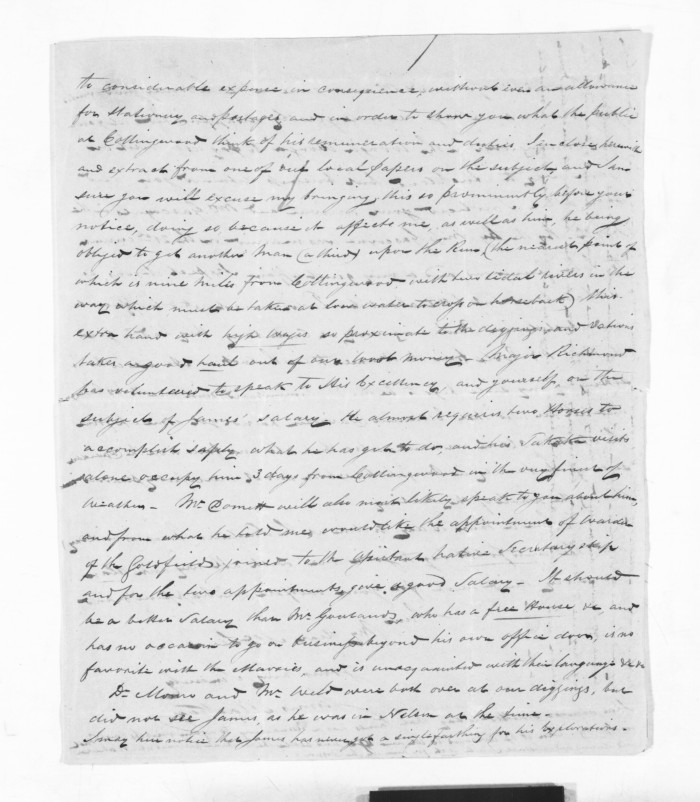 to considerable expence in consequence, without even an allowance
for Stationery and postages, and in order to show you what the public
at Collingwood think of his remuneration and duties I inclose herewith
and extract from one of our local papers on the subject, and I am
sure you will excuse my bringing this so prominently before your
notice, doing so because it affects me, as well as him, he being
obliged to get another man (a third) upon the Run (the nearest point of
which is nine miles from Collingwood with two tidal rivers in the
way which must be taken at low water to cross on horseback) this
extra hand with high wages so proximate to the diggings, and rations
takes a good haul out of our wool money. Major Richmond
has volunteered to speak to His Excellency, and yourself, on the
subject of James' salary. He almost requires two Horses to
accomplish safely what he has got to do, and his visits
alone occupy him 3 days from Collingwood in the very finest of
weather - Mr Domett will also most likely speak to you about him,
and from what he told me, would like the appointment of Warden
of the Goldfields joined to the Assistant native Secretaryship
and for the two appointments, give a good Salary - It should
be a better Salary than Mr who has a free House &c and
has no occasion to go on business beyond his own office door, is no
favorite with the Maories, and is unacquainted with their language &c &c
Dr Monro and Mr Weld were both over at our diggings, but
did not see James, as he was in Nelson at the time.
I may here notice that James has never got a single farthing for his explorations -